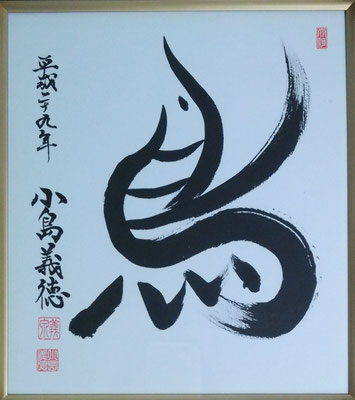 鳥
平成二十九年
小島義徳